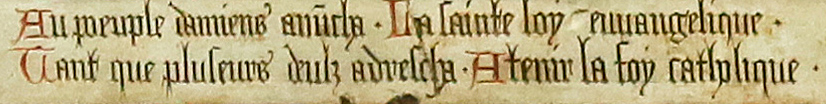 Au peuple damiens anūcha · La sainte loy euuangelique ·
Tant que pluseurs deulz adrescha · A tenir la foy catholique ·